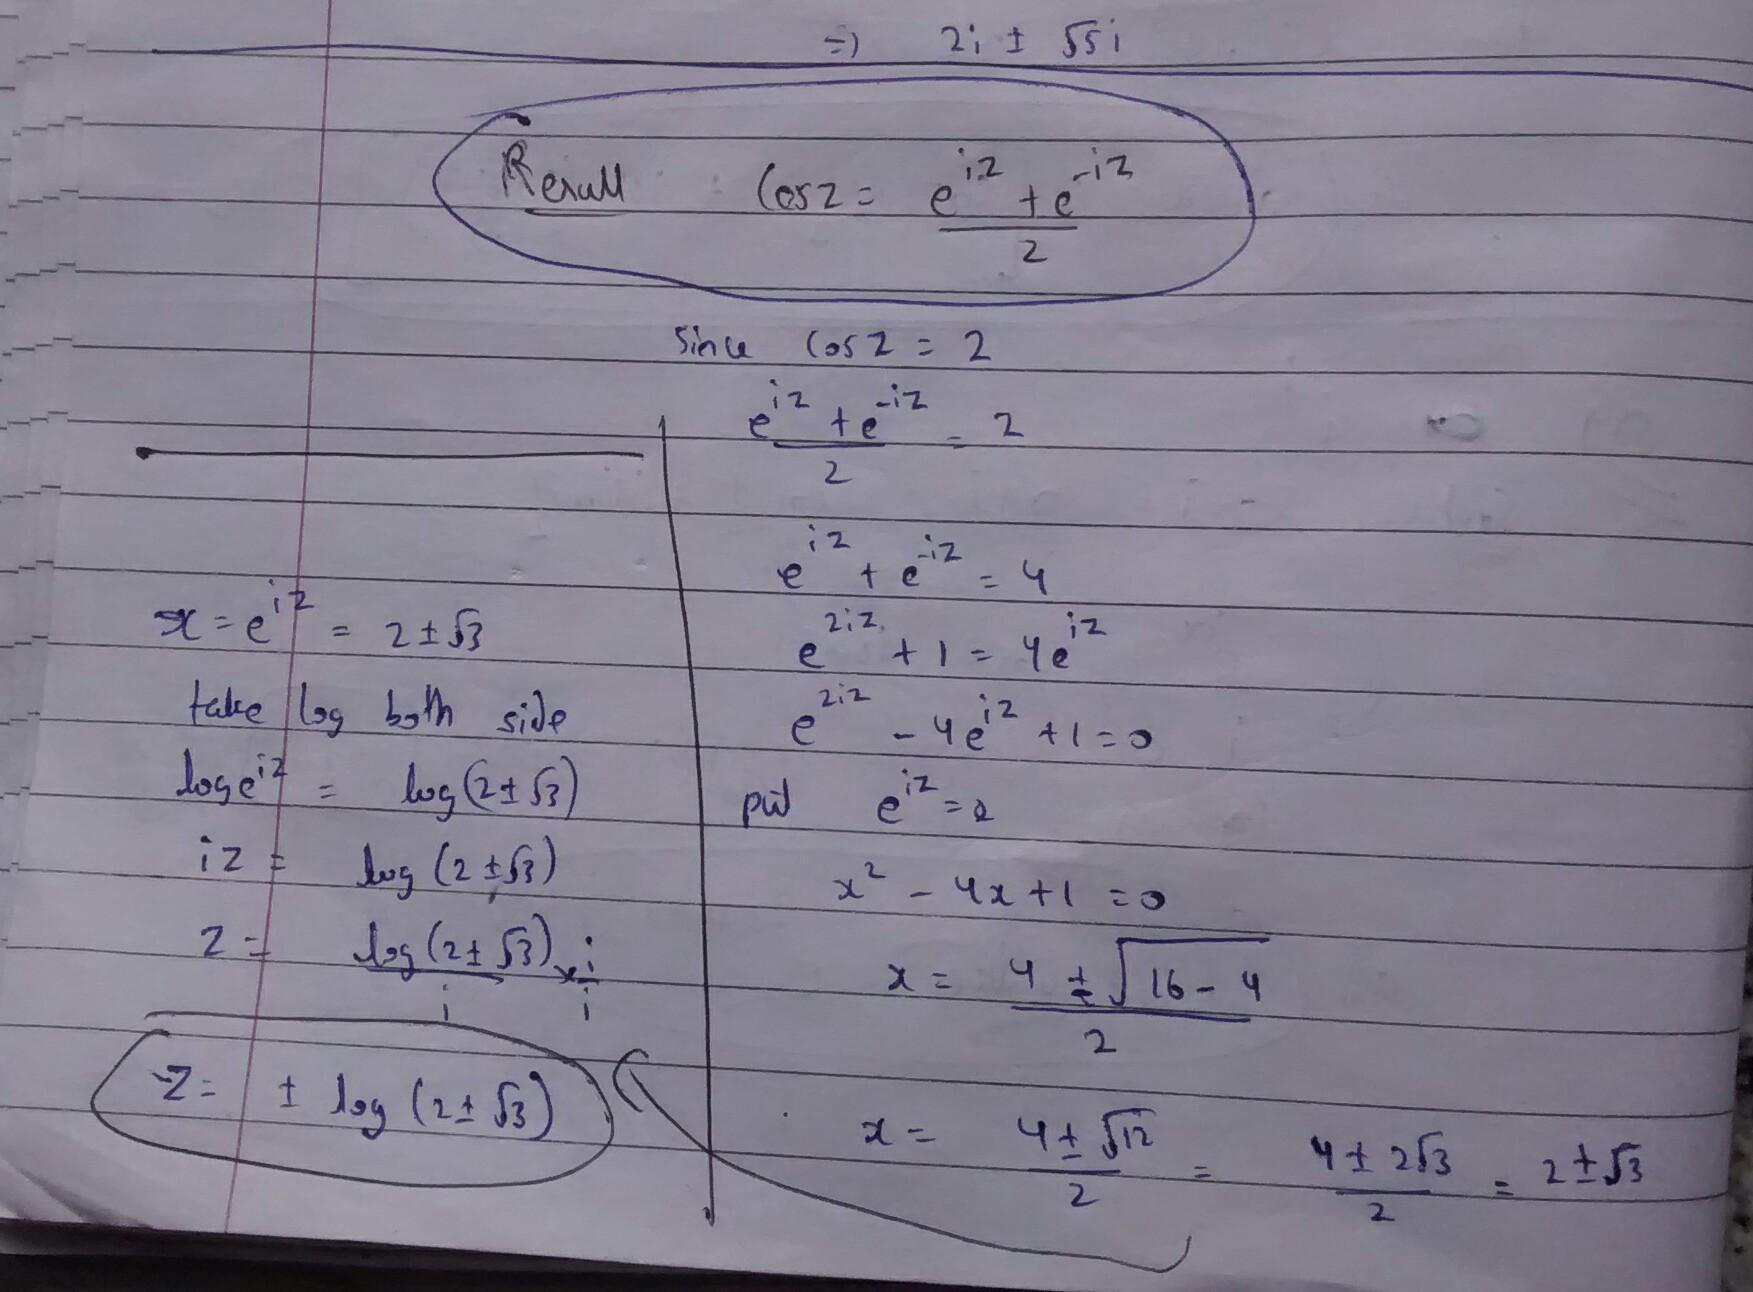 =) 2i ± √5 i
Recall cos z = (e^{iz} + e^{-iz})/2
Since cos z = 2
(e^{iz} + e^{-iz})/2 = 2
e^{iz} + e^{-iz} = 4
e^{2iz} + 1 = 4e^{iz}
e^{2iz} - 4e^{iz} + 1 = 0
put e^{iz} = x
x² - 4x + 1 = 0
x = (4 ± √(16 - 4))/2
x = (4 ± √12)/2 = (4 ± 2√3)/2 = 2 ± √3
x = e^{iz} = 2 ± √3
take log both side
log e^{iz} = log (2 ± √3)
iz = log (2 ± √3)
z = log (2 ± √3)/i × i/i
z = ± log (2 ± √3)